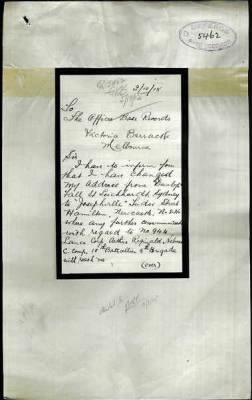 5462
3/10/18
To
The Officer Base Records
Victoria Barracks
Melbourne
Sir
I have to inform you
that I have changed
My Address from
Fall St Leichhardt Sydney
to "Josephville" Tudor Street
Hamilton, Newcastle N.S.W
where any further communication
with regard to No 944
Lance Corp Arthur Reginald
C Comp 18th Battallion 5th Brigade
will reach me
(over)